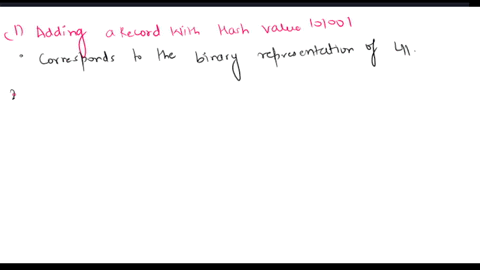 (1) Adding a Record With Hash value 101001
• Corresponds to the binary representation of 41.